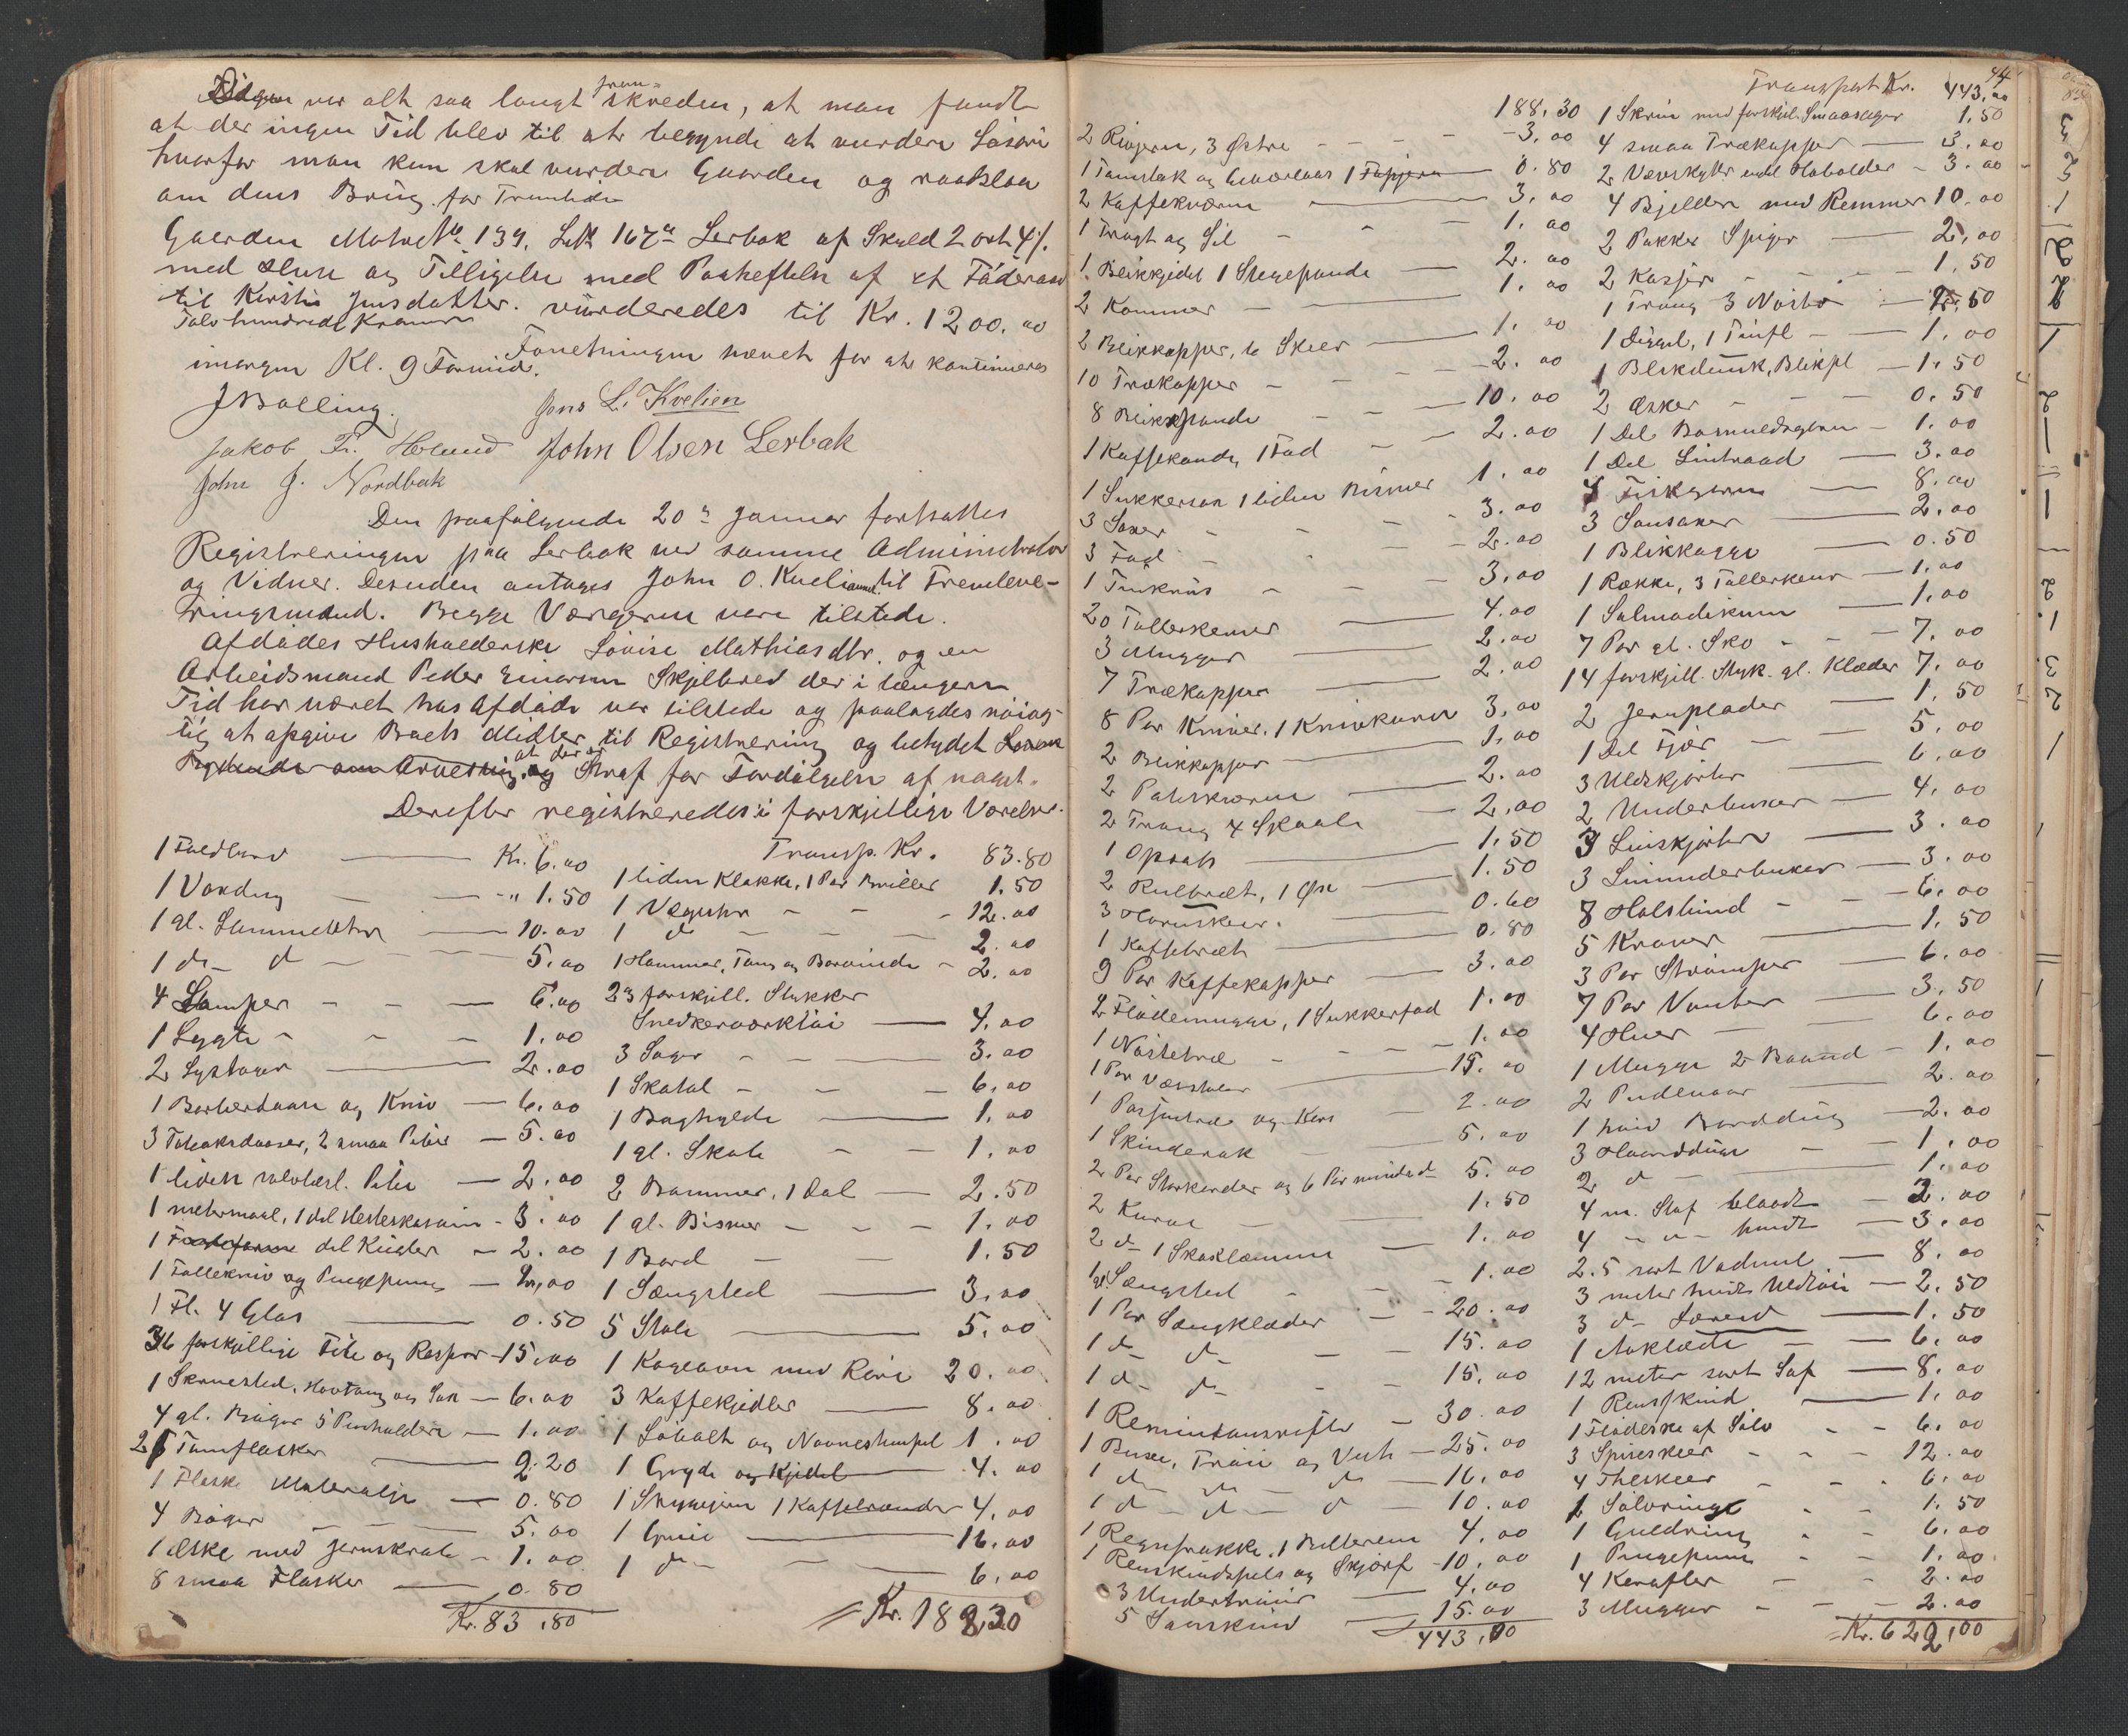 Dagen var alt saa langt frem-skreden, at man fandt
at der ingen Tid blev til at begynde at vurdere Løsøre
hvorfor man kun skal vurdere Gaarden og raadslaa
om dens Brug for Fremtiden
Gaarden Matr. No 139, L.No 167a Lerbak af Skyld 2 ort 4 s.
med Huse og Tilligelse med Paaheftelse af et Føderaad
til Kirstie Jensdatter. vurderedes til Kr. 1200.00
Tolv hundrede Kroner
Forretningen hævet for at kontinueres
imorgen Kl. 9 Formid.
J Balling.
Jens L. Kvelien
Jakob Fr. Holand John Olsen Lerbak
John J. Nordbak
Den paafølgende 20de Januar fortsattes
Registreringen paa Lerbak ved samme Administrator
og Vidner. Desuden antages John O. Kveli til Fremleve-
ringsmand. Begge Værgerne vare tilstede.
Afdødes Husholderske Lovise Mathiasdtr. og en
Arbeidsmand Peder Einarsen Skjelbred der i længere
Tid har været hos Afdøde var tilstede og paalagdes nøiag-
tig at opgive Boets Midler til Registrering og betydet
at der er Straf for Fordølgelse af noget.
Derefter registreredes i forskjellige Værelser.
1 Foldbord Kr. 6.00
1 Voxdug " 1.50
1 gl. Lommeuhr 10.00
1 do do 5.00
4 Lamper 6.00
1 Lygte 1.00
2 Lystager 2.00
1 Barberdaase og Kniv 6.00
3 Tobaksdaaser, 2 smaa Piber 5.00
1 liden sølvbesl. Pibe 2.00
1 metermaal, 1 del Hesteskosøm 3.00
1 del Kugler 2.00
1 Follekniv og Pengepung 2.00
1 Fl. 4 Glas 0.50
36 forskjellige File og Rasper 15.00
1 Skruested, Hovtang og Sax 6.00
4 gl. Bøger 5 Penholdere 1.00
26 Tomflasker 2.20
1 Flaske Malerolje 0.80
4 Bøger 5.00
1 Æske med Jernskrab 1.00
8 smaa Flasker 0.80
Kr. 83.80
Transp. Kr. 83.80
1 liden Klokke, 1 Par Briller 1.50
1 Væguhr 12.00
1 do 2.00
1 Hammer, Tang og Borvinde 2.00
23 forskjell. Stykker
Snedkerværktøi 4.00
3 Sager 3.00
1 Skatol 6.00
1 Boghylde 1.00
1 gl. Skab 1.00
2 Bommer, 1 Dal 2.50
1 gl. Bismer 1.00
1 Bord 1.50
1 Sængsted 3.00
5 Stole 5.00
1 Kogeovn med Rør 20.00
3 Kaffekjedler 8.00
1 Søbolt og Navnestempel 1.00
1 Gryde og Kjedel 4.00
1 Strygejern 1 Kaffebrænder 4.00
1 Grue 16.00
1 do 6.00
Kr. 188,30
188,30
2 Ringjern, 3 Østre 3,00
1 0.80
2 Kaffekværne 3,00
1 Tragt og Sil 1.00
1 Blikkjedel 1 Stegepande 2.00
2 Kommer 1.00
2 Blikkopper, 6 Skeer 1.00
10 Trækopper 2.00
8 Blikkspande 10.00
1 Kaffekande, 1 Fad 2.00
1 Sukkersax 1 liden Bismer 1.00
3 Saxer 3.00
3 Fad 2.00
1 Tinkrus 3.00
20 Tallerkener 4.00
3 Mugger 2.00
7 Trækopper 2.00
8 Par Kniver, 1 Knivkurv 3,00
2 Blikkopper 1.00
2 2.00
2 Traug 4 Skaale 2.00
1 Opsats 1.50
2 Rulbræt, 1 Øse 1.50
3 Hornskeer 0.60
1 Kaffebræt 0.80
9 Par Kaffekopper 3.00
2 Flødemugge, 1 Sukkerfad 1.00
1 Nøstetræ 1.00
1 Par Vævstole 15.00
1 2.00
1 Skindsæk 5.00
2 Par Storkarder og 6 Par mindre do 5.00
2 Kurve 1.50
2 do 1.00
1 gl. Sængsted 1.00
1 Par Sængklæder 20.00
1 do do 15.00
1 do do 15.00
1 30.00
1 Buxe, Trøie og Vest 25.00
1 do do do 16.00
1 do do do 10.00
1 Regnfrakke, 1 Bælterem 4.00
1 Renskindspels og Skjørf 10.00
3 Undertrøier 4.00
5 Saueskind 15.00
443,00
44
Transport Kr. 443,00
1 Skrin med forskjel. Smaasager 1,50
4 smaa Trækopper 3.00
2 Vævskytter 3.00
4 Bjelder med Remmer 10.00
2 Pakker Spiger 2,00
2 Kasser 1,50
1 Traug 3 Nøster 2,50
1 Digel, 1 1.00
1 1.50
2 Æsker 0.50
1 Del Bomuldsgarn 1.00
1 Del Lintraad 3.00
4 Fiskgarn 8.00
3 Sausaxer 2.00
1 Blikkagge 0.50
1 Række, 3 Tallerkener 1.00
1 Salmodikum 1.00
7 Par gl. Sko 7.00
14 forskjell. Styk. gl. Klæder 7.00
2 Jernplader 1.50
1 Del Fjær 5.00
3 Uldskjorter 6.00
2 Underbuxer 4.00
3 Linskjorter 3.00
3 Linunderbuxer 3.00
8 Halsbind 6.00
5 Kraver 1.50
3 Par Strømper 6.00
7 Par Vanter 3.50
4 Huer 6.00
1 Mugge 2 Baand 1.00
2 Pudevaar 2.00
1 hvid Borddug 2.00
3 Haandduge 1.00
2 do 1.00
4 m. Stof blaadt 2.00
4 " " hvidt 3.00
2.5 sort Vadmel 8.00
3 meter hvidt Uldtøi 2.50
3 do Lærred 1.50
1 Aaklæde 6.00
12 meter sort Tøi 8.00
1 Renskind 1.00
1 Flødeske af Sølv 6.00
3 Spiseskeer 12.00
4 Theskeer 6.00
2 Sølvringe 1.50
1 Guldring 6.00
1 Pengepung 1.00
4 Karafler 2.00
3 Mugger 2.00
Kr. 622,00